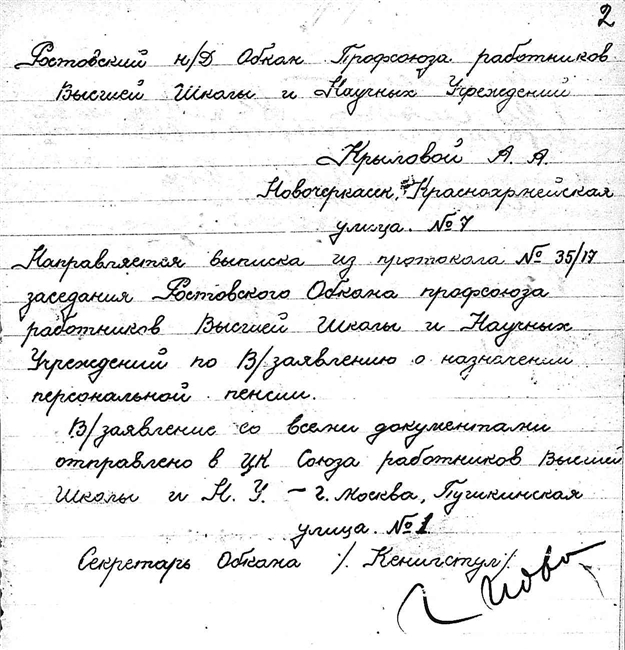 2
Ростовский н/Д Обком Профсоюза работников
Высшей Школы и Научных Учреждений
Крыловой А. А.
Новочеркасск, Красноармейская
улица. № 7
Направляется выписка из протокола № 35/17
заседания Ростовского Обкома профсоюза
работников Высшей Школы и Научных
Учреждений по В/заявлению о назначении
персональной пенсии.
В/заявление со всеми документами
отправлено в ЦК Союза работников Высшей
Школы и Н. У. – г. Москва, Пушкинская
улица. № 1
Секретарь Обкома /. Кенигстул/.